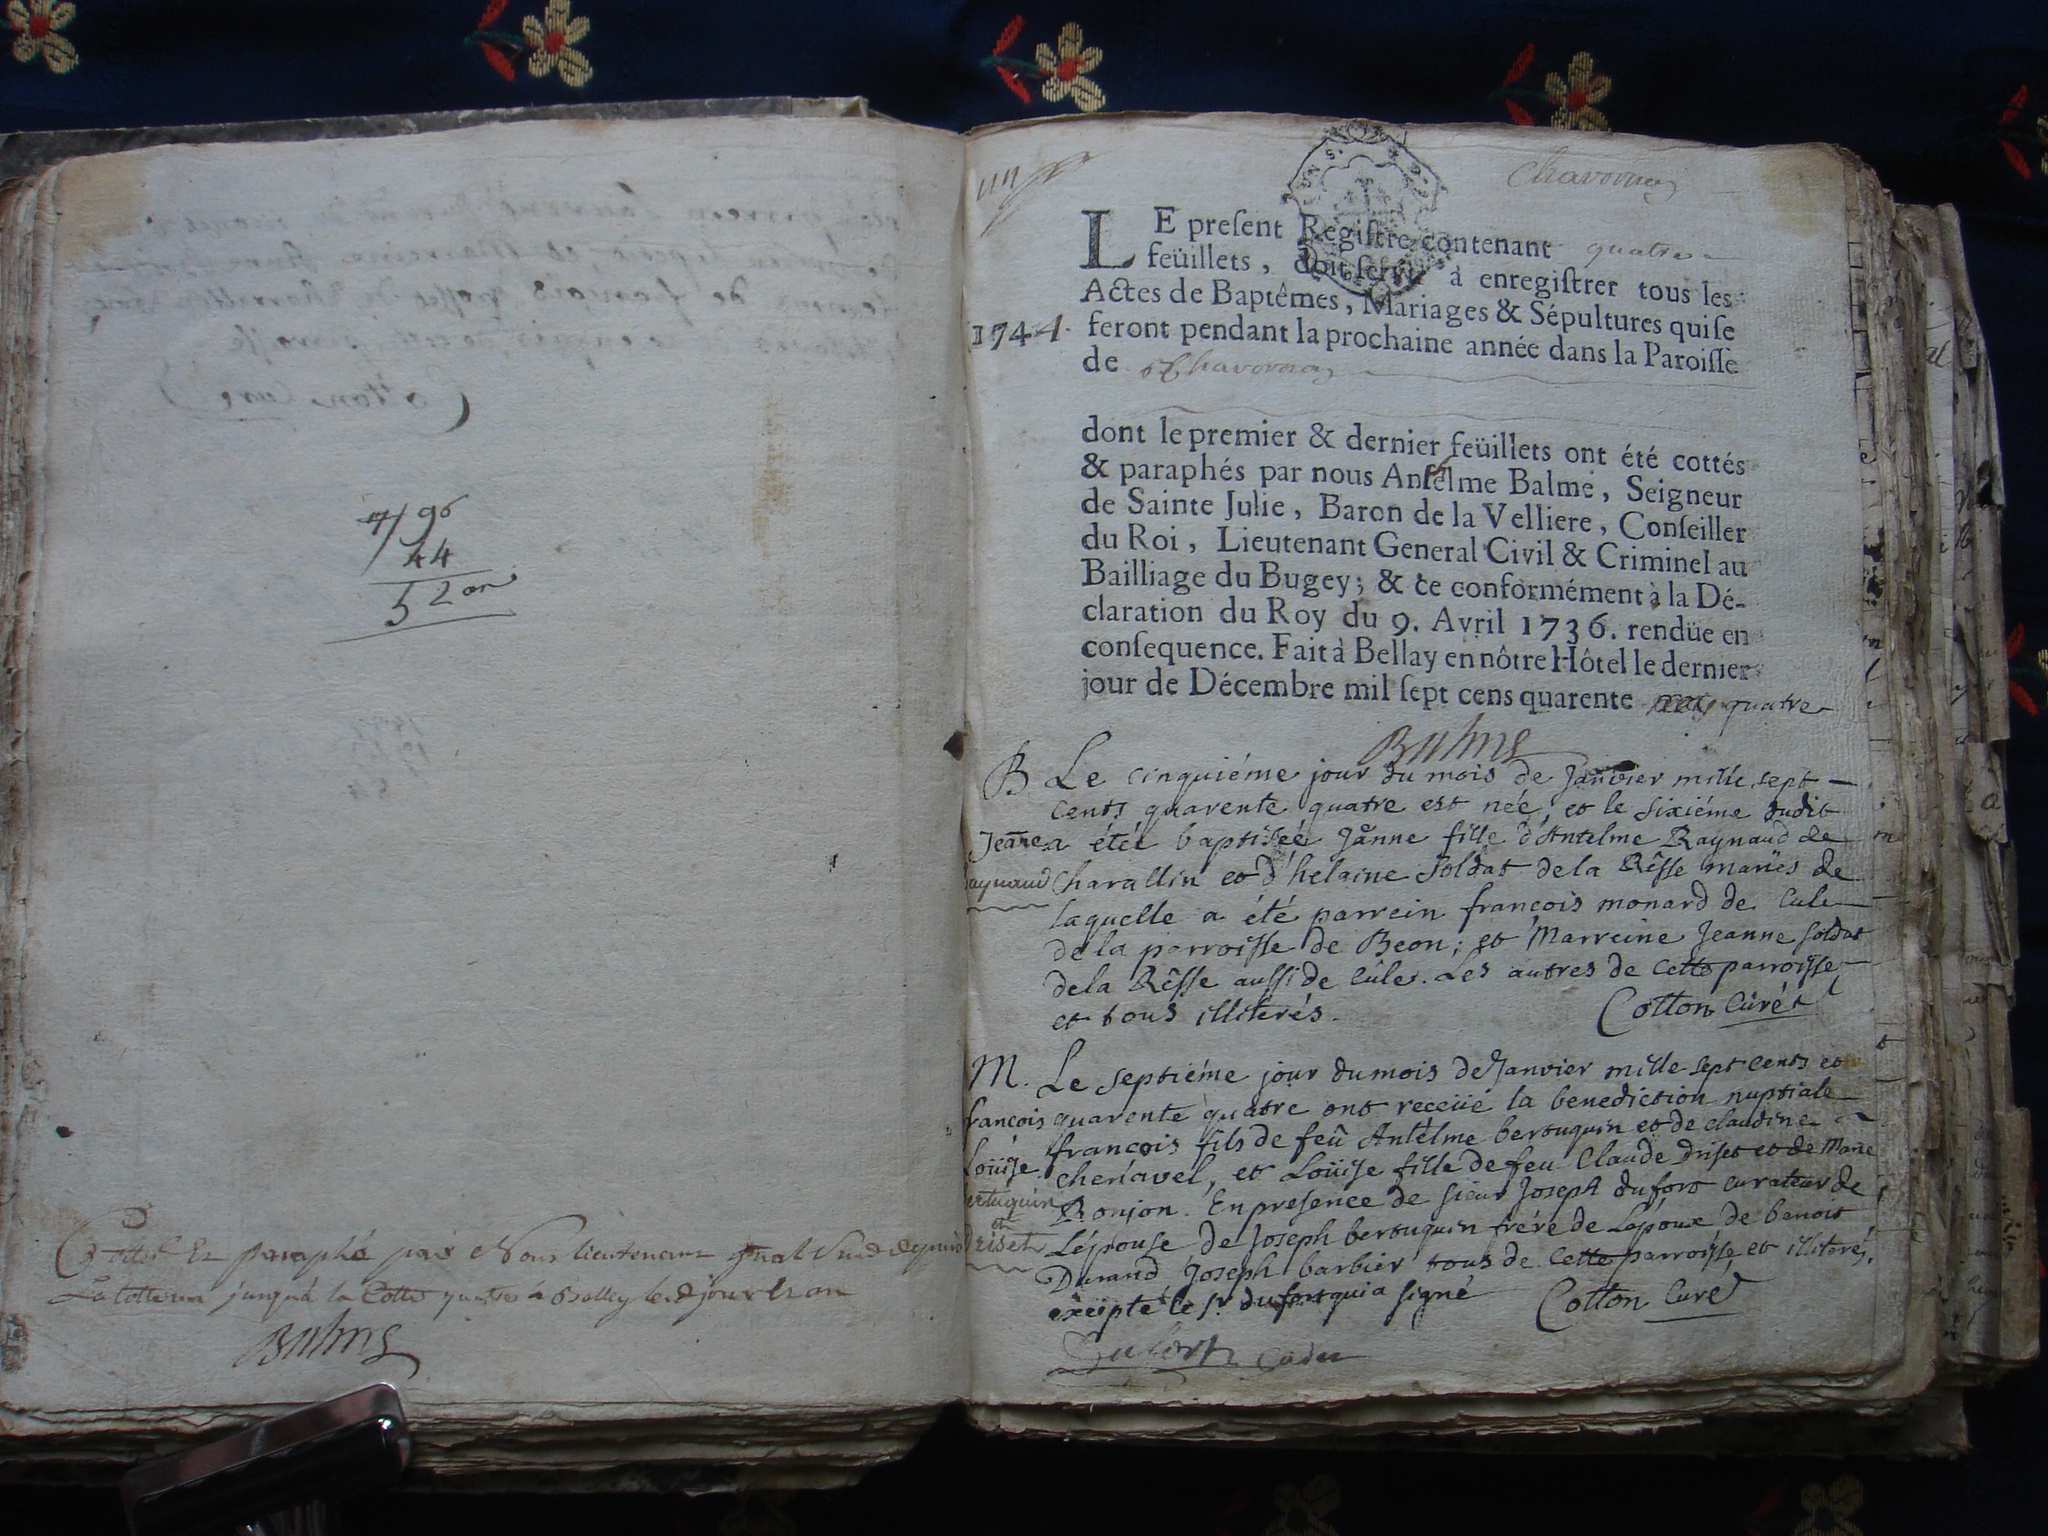 96
44
52 an
Cotté Et paraphé par Nous lieutenant
jusqu'à la Cotte quatre à Belley led jour et an
Balme
Chavornay
LE preſent Regiſtre contenant quatre
feüillets, doit ſervir à enregiſtrer tous les
Actes de Baptêmes, Mariages & Sépultures qui ſe
1744. feront pendant la prochaine année dans la Paroiſſe
de Chavornay
dont le premier & dernier feüillets ont été cottés
& paraphés par nous Anſelme Balme, Seigneur
de Sainte Julie, Baron de la Velliere, Conſeiller
du Roi, Lieutenant General Civil & Criminel au
Bailliage du Bugey; & ce conformément à la Dé-
claration du Roy du 9. Avril 1736. rendüe en
conſequence. Fait à Bellay en nôtre Hôtel le dernier
jour de Décembre mil ſept cens quarente quatre
Balme
B Le cinquiéme jour du mois de Janvier mille sept
cents quarente quatre est née, et le sixiéme dudit
Jeanne a étéé baptisée Jânne fille d'Antelme Raynaud de
aynaud Charallin et d'helaine Soldat de la Rêsse mariés de
laquelle a été parrein françois monard de Cule
de la parroisse de Beon; et Marreine Jeanne Soldat
de la Rêsse aussi de Cûle. Les autres de cette parroisse
et tous illiterés.
Cotton Curé
M. Le septiéme jour du mois de Janvier mille sept cents et
francois quarente quatre ont receüe la benediction nuptiale
francois fils de feû Antélme bertuquin et de claudine
Loüise chenavel, et Loüise fille de feu Claude Driset et de Marie
ertuquin Ronjon. En presence de sieur Joseph dufort curateur de
et
Driset Lépouse de Joseph bertuquin frére de Lépoux de benoit
Durand Joseph barbier tous de cette parroisse, et illiterés,
exêipté le Sr. dufort qui a signé
Cotton Curé
Dufort